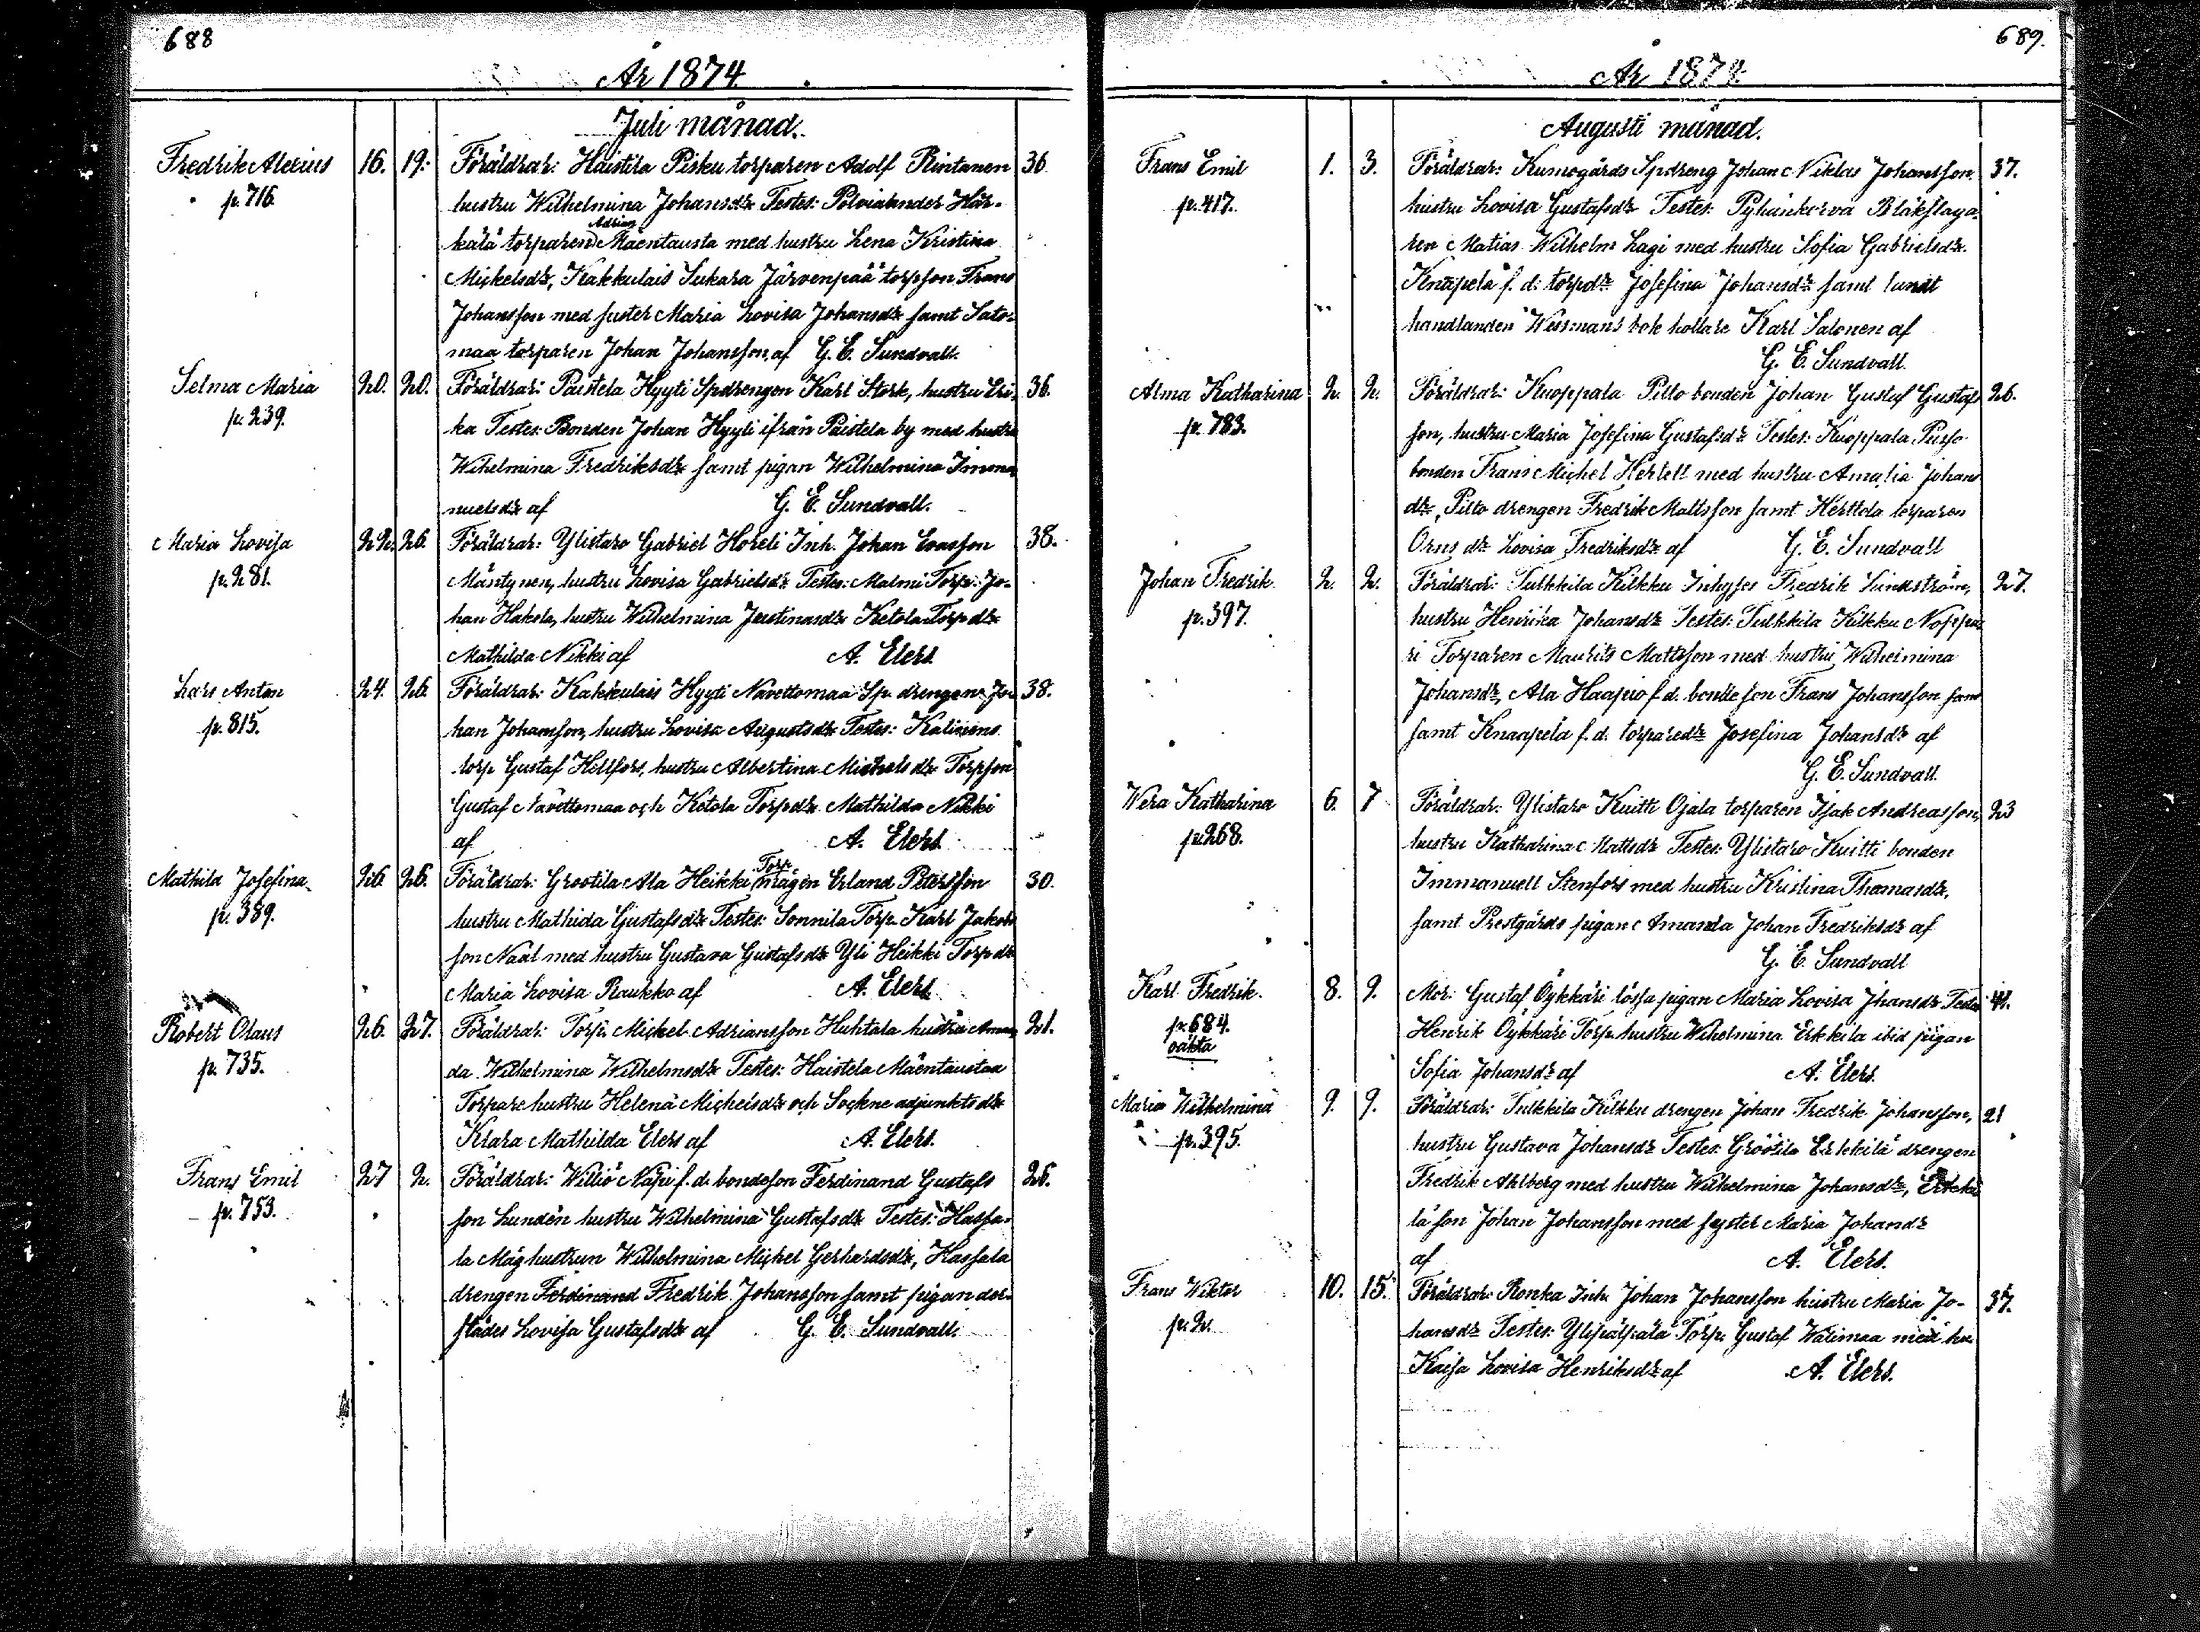 688
År 1874
Juli månad.
Fredrik Alexius 16. 19. Föräldrar: Haistila Pisku torparen Adolf Rintanen 36
p. 716. hustru Wilhelmina Johansdr Testes: Polvialander Här-
kälä torparen Adrian Mäentausta med hustru Lena Kristina
Mickelsdr, Kakkulais Sukara Järvenpää torpson Frans
Johansson med syster Maria Lovisa Johansdr samt Sato-
maa torparen Johan Johansson, af G. E. Sundvall.
Selma Maria 20. 20. Föräldrar: Paistela Hyyti Spdrengen Karl Stork, hustru Eri- 36.
p. 239. ka Testes: Bonden Johan Hyyti ifrån Paistela by med hustru
Wilhelmina Fredriksdr samt pigan Wilhelmina Imma
nuelsdr af G. E. Sundvall.
Maria Lovisa 22. 26. Föräldrar: Ylistaro Gabriel Horeli Inh. Johan Evasson 38.
p. 281. Mäntynen, hustru Lovisa Gabrielsdr Testes: Malmi Torp. Jo-
han Hakola, hustru Wilhelmina Justinasdr Ketola Torpdr
Mathilda Nikki af A. Elers.
Lars Anton 24. 26. Föräldrar: Kakkulais Hyyti Navettomaa Sp. drengen Jo- 38.
p. 815. han Johansson, hustru Lovisa Augustsdr Testes:
torp Gustaf Hellfors, hustru Albertina Michelsdr Torpson
Gustaf Navettomaa och Ketola Torpdr Mathilda Nikki
af A. Elers.
Mathilda Josefina 26 26. Föräldrar: Grootila Ala Heikki Torp mågen Erland Petersson 30.
p. 389. hustru Mathilda Gustafsdr Testes: Sonnila Torp. Karl Jakobs
son Naal med hustru Gustava Gustafsdr Yli Heikki Torpdr
Maria Lovisa Raukko af A. Elers.
Robert Olaus 26. 27. Föräldrar: Torp. Mickel Adriansson Huhtala hustru Aman- 21.
p. 735. da Wilhelmina Wilhelmsdr Testes: Haistela Mäentaustaa
Torpare hustru Helena Michelsdr och Sockne adjunkts dr
Klara Mathilda Elers af A. Elers.
Frans Emil 27 2. Föräldrar: Williö Näpi f. d. bondeson Ferdinand Gustafs 25.
p. 753. son Lunden hustru Wilhelmina Gustafsdr Testes: Hassa-
la Måg hustrun Wilhelmina Michel Gerhardsdr, Hassala
drengen Ferdinand Fredrik Johansson samt pigan der-
städes Lovisa Gustafsdr af G. E. Sundvall.
689.
År 1874
Augusti månad.
Frans Emil 1. 3. Föräldrar: Kumogårds Spdreng Johan Niklas Johansson. 37.
p. 417. hustru Lovisa Gustafsdr Testes: Pyhänkorva Bläkslaga
ren Matias Wilhelm Lagi med hustru Sofia Gabrielsdr.
Knaapela f. d. torpdr Josefina Johansdr samt lundt
handlanden Wessmans bok hollare Karl Salonen af
G. E. Sundvall.
Alma Katharina 2. 2. Föräldrar: Kuoppala Pitto bonden Johan Gustaf Gustafs 26.
p. 783. son, hustru Maria Josefina Gustafsdr Testes: Kuoppala
bonden Frans Michel Hertell med hustru Amalia Johans
dr, Pitto drengen Fredrik Mattsson samt Herttola torparen
Orns dr Lovisa Fredriksdr af G. E. Sundvall
Johan Fredrik 2. 2. Föräldrar: Tulkkila Kilkku Inhyses Fredrik Lindström, 27.
p. 397. hustru Henrika Johansdr Testes: Tulkkila Kilkku Noppa
ri Torparen Maurits Mattsson med hustru Wilhelmina
Johansdr, Ala Haapio f. d. bonde son Frans Johansson sam
samt Knaapela f. d. torparedr Josefina Johansdr af
G. E. Sundvall.
Wera Katharina 6. 7 Föräldrar: Ylistaro Kuitti Ojala torparen Isak Andreasson, 23
p. 268. hustru Katharina Mattsdr Testes: Ylistaro Kuitti bonden
Immanuell Stenfors med hustru Kristina Thomasdr,
samt Prestgårds pigan Amanda Johan Fredriksdr af
G. E. Sundvall
Karl Fredrik. 8. 9. Mor: Gustaf Öykkäri lösa pigan Maria Lovisa Jhansdr Testes 41.
p. 684. Henrik Öykkäri Torp. hustru Wilhelmina Erkkila ibid pigan
oäkta Sofia Johansdr af A. Elers.
Maria Wilhelmina 9. 9. Föräldrar: Tulkkila Kilkku drengen Johan Fredrik Johansson, 21
p. 395. hustru Gustava Johansdr Testes: Groötila Erkkilä drengen
Fredrik Ahlberg med hustru Wilhelmina Johansdr, Erkki
lä son Johan Johansson med syster Maria Johansdr
af A. Elers.
Frans Wiktor 10. 15. Föräldrar: Ronka Inh. Johan Johansson hustru Maria Jo- 37.
p. 2. hansdr Testes: Ylipälpälä Torp. Gustaf Wälimaa med hu
Kaisa Lovisa Henriksdr af A. Elers.